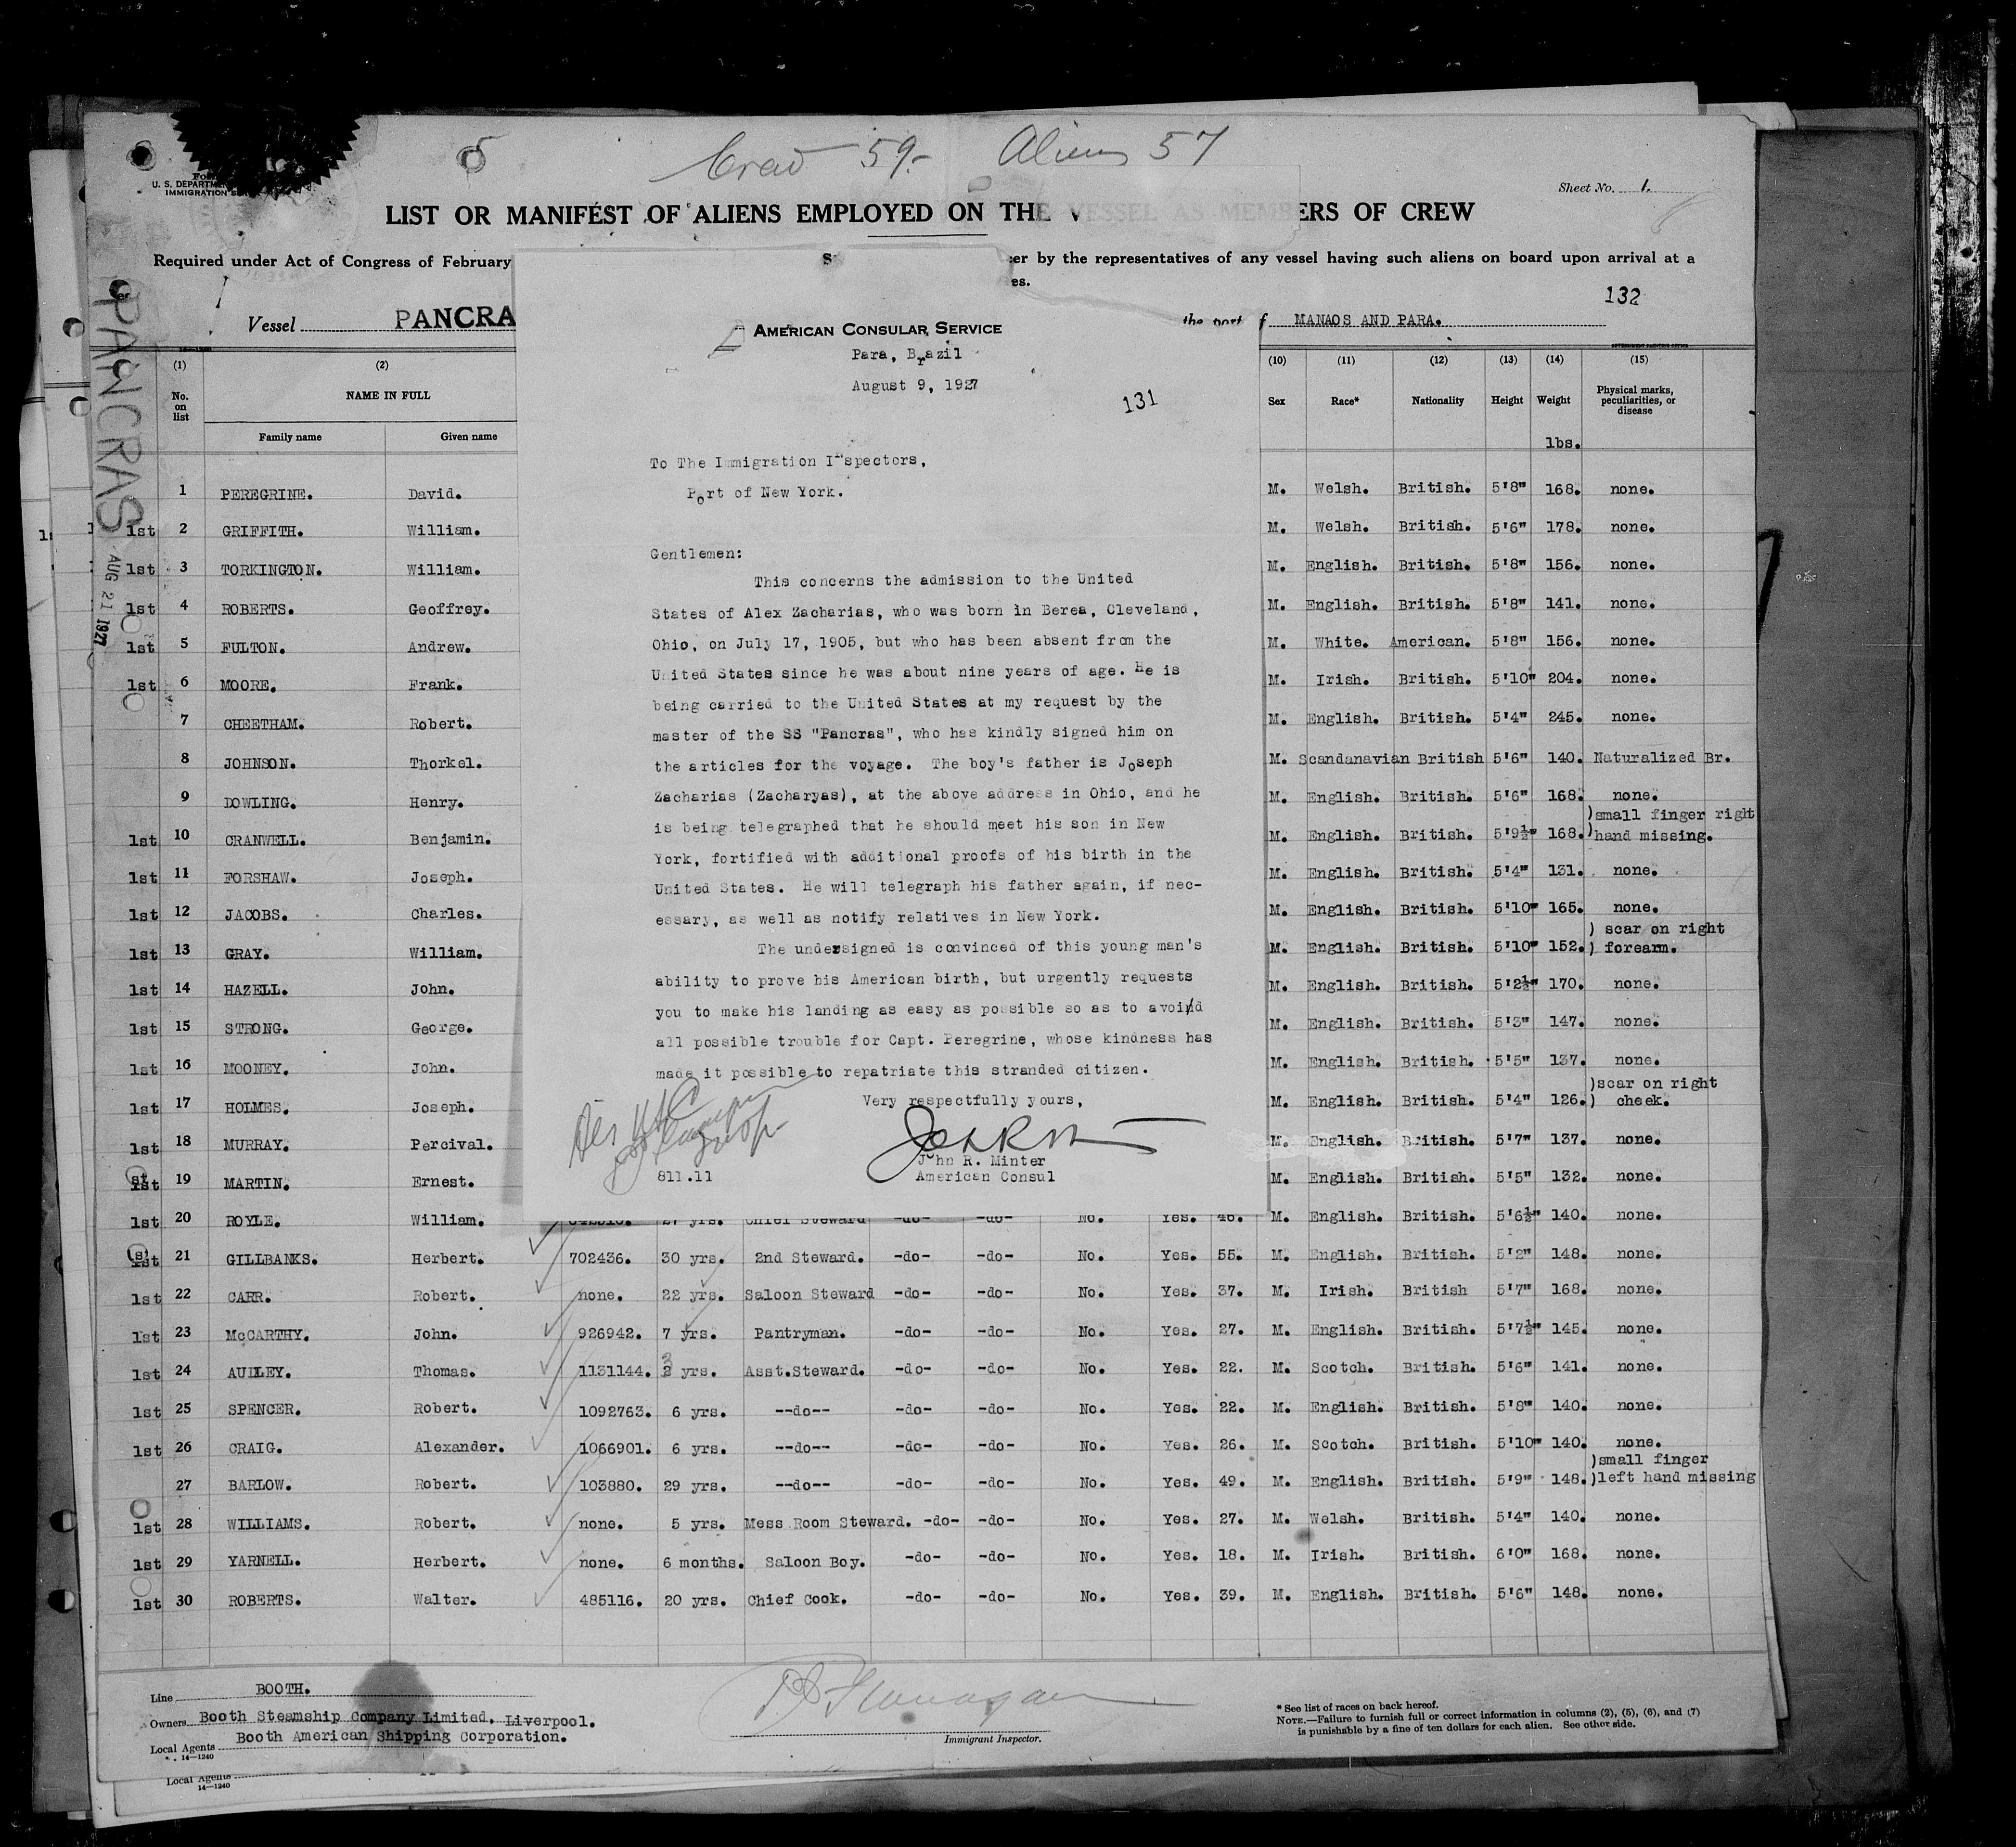 5
Crew 59.- Aliens 57
U. S. DEPARTM
IMMIGRATION S
Sheet No. 1.
LIST OR MANIFEST OF ALIENS EMPLOYED ON THE VESSEL AS MEMBERS OF CREW
Required under Act of Congress of February
er by the representatives of any vessel having such aliens on board upon arrival at a
es.
132
Vessel PANCRA
the port f MANAOS AND PARA.
PANCRAS
AUG 21 1927
AMERICAN CONSULAR SERVICE
Para, Brazil
August 9, 1927
131
To The Immigration Inspectors,
Port of New York.
Gentlemen:
This concerns the admission to the United
States of Alex Zacharias, who was born in Berea, Cleveland,
Ohio, on July 17, 1905, but who has been absent from the
United States since he was about nine years of age. He is
being carried to the United States at my request by the
master of the SS "Pancras", who has kindly signed him on
the articles for the voyage. The boy's father is Joseph
Zacharias (Zacharyas), at the above address in Ohio, and he
is being telegraphed that he should meet his son in New
York, fortified with additional proofs of his birth in the
United States. He will telegraph his father again, if nec-
essary, as well as notify relatives in New York.
The undersigned is convinced of this young man's
ability to prove his American birth, but urgently requests
you to make his landing as easy as possible so as to avoid
all possible trouble for Capt. Peregrine, whose kindness has
made it possible to repatriate this stranded citizen.
Very respectfully yours,
John R. Minter
American Consul
811.11
(1) (2) (10) (11) (12) (13) (14) (15)
No. on list NAME IN FULL Sex Race* Nationality Height Weight Physical marks, peculiarities, or disease
Family name Given name lbs.
1 PEREGRINE. David. M. Welsh. British. 5'8" 168. none.
1st 2 GRIFFITH. William. M. Welsh. British. 5'6" 178. none.
1st 3 TORKINGTON. William. M. English. British. 5'8" 156. none.
1st 4 ROBERTS. Geoffrey. M. English. British. 5'8" 141. none.
1st 5 FULTON. Andrew. M. White. American. 5'8" 156. none.
1st 6 MOORE. Frank. M. Irish. British. 5'10" 204. none.
7 CHEETHAM. Robert. M. English. British. 5'4" 245. none.
8 JOHNSON. Thorkel. M. Scandanavian British 5'6" 140. Naturalized Br.
9 DOWLING. Henry. M. English. British. 5'6" 168. none.
1st 10 CRANWELL. Benjamin. M. English. British. 5'9½" 168. )small finger right )hand missing.
1st 11 FORSHAW. Joseph. M. English. British. 5'4" 131. none.
1st 12 JACOBS. Charles. M. English. British. 5'10" 165. none.
1st 13 GRAY. William. M. English. British. 5'10" 152. ) scar on right ) forearm.
1st 14 HAZELL. John. M. English. British. 5'2½" 170. none.
1st 15 STRONG. George. M. English. British. 5'3" 147. none.
1st 16 MOONEY. John. M. English. British. 5'5" 137. none.
1st 17 HOLMES. Joseph. M. English. British. 5'4" 126. )scar on right ) cheek.
1st 18 MURRAY. Percival. M. English. British. 5'7" 137. none.
1st 19 MARTIN. Ernest. M. English. British. 5'5" 132. none.
1st 20 ROYLE. William. 27 yrs. Chief Steward -do- -do- No. Yes. 46. M. English. British. 5'6½" 140. none.
1st 21 GILLBANKS. Herbert. 702436. 30 yrs. 2nd Steward. -do- -do- No. Yes. 55. M. English. British. 5'2" 148. none.
1st 22 CARR. Robert. none. 22 yrs. Saloon Steward -do- -do- No. Yes. 37. M. Irish. British 5'7" 168. none.
1st 23 McCARTHY. John. 926942. 7 yrs. Pantryman. -do- -do- No. Yes. 27. M. English. British. 5'7½" 145. none.
1st 24 AUDLEY. Thomas. 1131144. 2 yrs. Asst.Steward. -do- -do- No. Yes. 22. M. Scotch. British. 5'6" 141. none.
1st 25 SPENCER. Robert. 1092763. 6 yrs. --do-- -do- -do- No. Yes. 22. M. English. British. 5'8" 140. none.
1st 26 CRAIG. Alexander. 1066901. 6 yrs. --do-- -do- -do- No. Yes. 26. M. Scotch. British. 5'10" 140. none.
27 BARLOW. Robert. 103880. 29 yrs. --do-- -do- -do- No. Yes. 49. M. English. British. 5'9" 148. )small finger )left hand missing
1st 28 WILLIAMS. Robert. none. 5 yrs. Mess Room Steward. -do- -do- No. Yes. 27. M. Welsh. British. 5'4" 140. none.
1st 29 YARNELL. Herbert. none. 6 months. Saloon Boy. -do- -do- No. Yes. 18. M. Irish. British. 6'0" 168. none.
1st 30 ROBERTS. Walter. 485116. 20 yrs. Chief Cook. -do- -do- No. Yes. 39. M. English. British. 5'6" 148. none.
Line BOOTH.
Owners Booth Steamship Company Limited, Liverpool.
Local Agents Booth American Shipping Corporation.
14—1240
Immigrant Inspector.
* See list of races on back hereof.
NOTE.—Failure to furnish full or correct information in columns (2), (5), (6), and (7)
is punishable by a fine of ten dollars for each alien. See other side.
Local Agents
14—1240